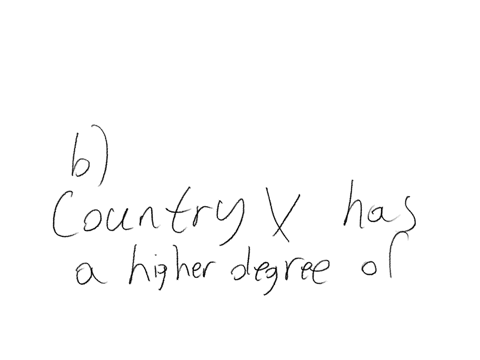 b)
Country X has
a higher degree of